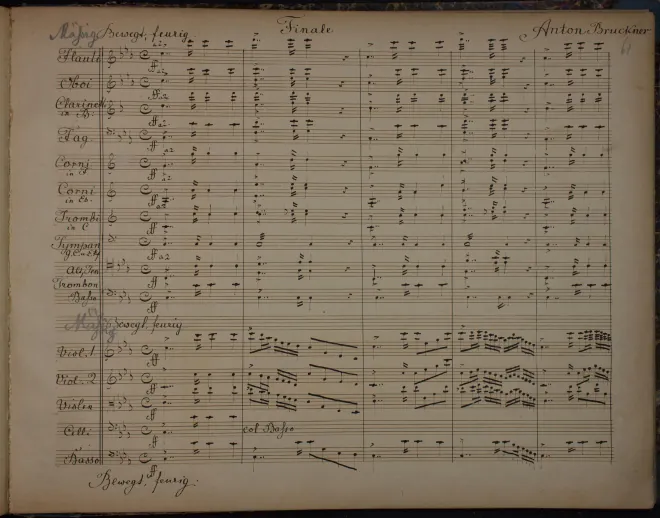 Mäßig Bewegt, feurig Finale Anton Bruckner
Flauti
ff
Oboi
ff
Clarinett
in B:
ff
Fag
ff
Corni
in F
ff
Corni
in Es.
ff
Trombi
in C
ff
Tympan
ff
Alt, Ten
Trombon
Basso
ff
Mäßig Bewegt, feurig
Viol. 1
ff
Viol. 2
ff
Violen
ff
Celli
ff
col Basso
Basso
ff
Bewegt, feurig.